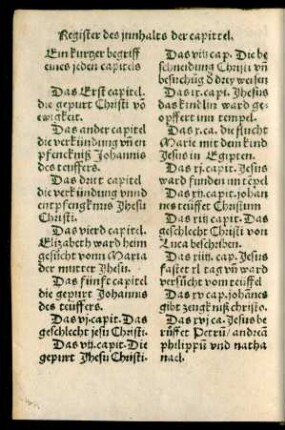 Register des innhalts der capittel.
Ein kurtzer begriff
eines jeden capitels
Das Erst capitel.
die gepurt Christi võ
ewigkeit.
Das ander capitel
die verkündung vñ en
pfenckniß Johannis
des teuffers.
Das dritt capitel
die verkündung vnnd
entpfengknus Jhesu
Christi.
Das vierd capitel.
Elizabeth ward heim
gesücht vonn Maria
der mutter Jhesu.
Das fünfft capitel
die gepurt Johannis
des teuffers.
Das vj.capit. Das
geschlecht jesu Christi.
Das vij.capit. Die
gepurt Jhesu Christi.
Das viij cap. Die be
schneidung Christi vñ
besuchüg d̕ drey weisen
Das ix.capi. Jhesus
das kindlin ward ge-
opffert inn tempel.
Das x.ca. die flucht
Marie mit dem kind
Jesus in Egipten.
Das xj.capit. Jesus
ward funden im tēpel
Das xij.capit. johan
nes teüffet Christum
Das xiij capit. Das
geschlecht Christi von
Luca beschriben.
Das xiiij. cap. Jesus
fastet xl tag vñ ward
versücht vom teüffel
Das xv cap. johānes
gibt zeugkniß christo.
Das xvj ca. Jesus be
rüffet Petrū/ andreā
philippū vnd natha
nael.